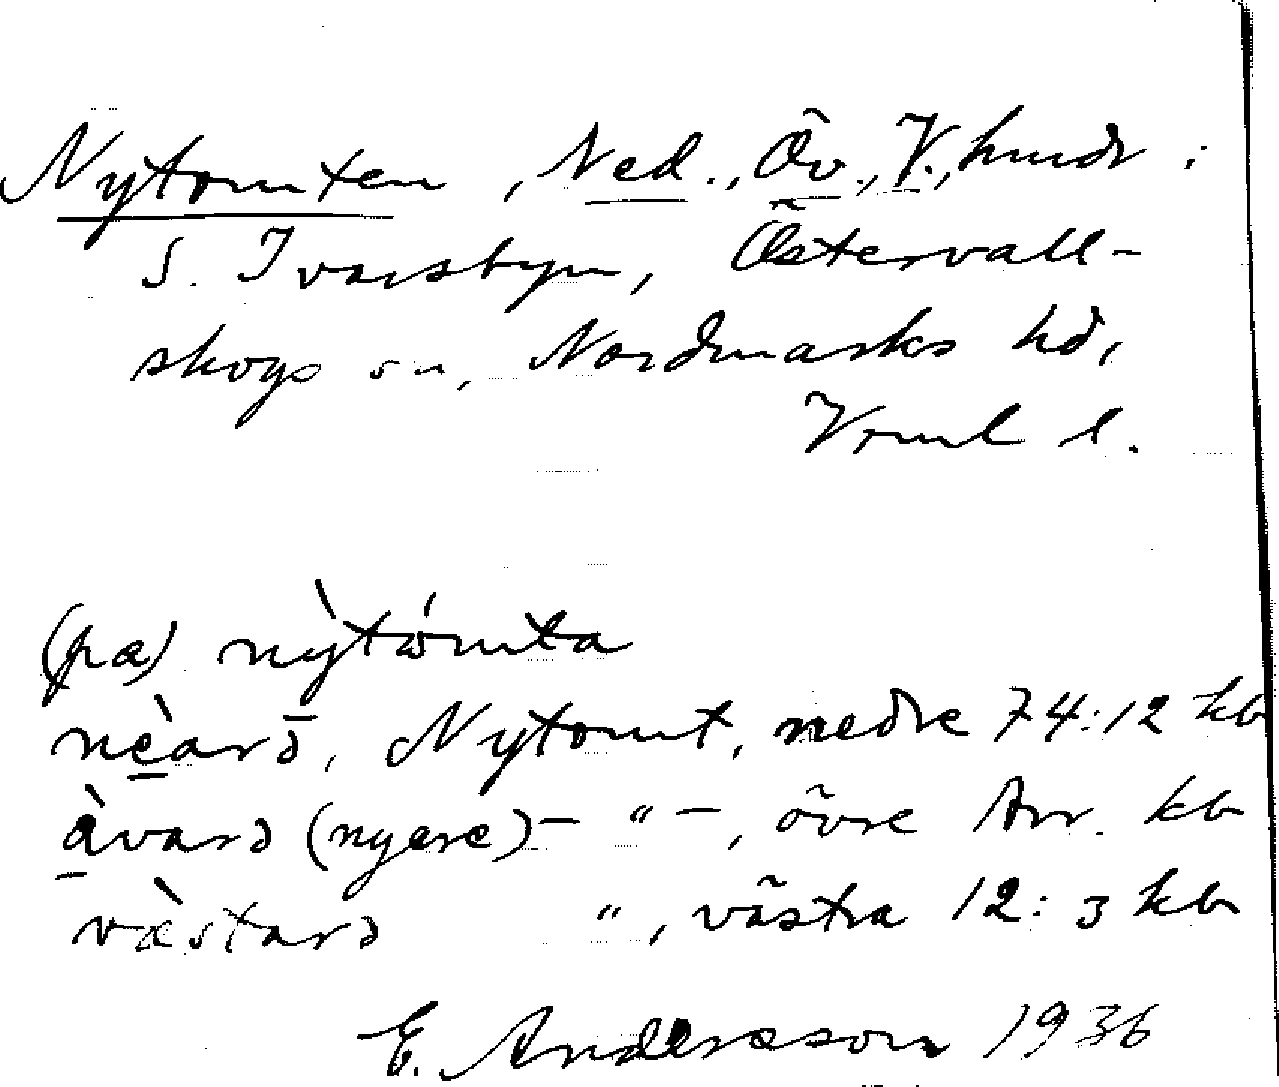 Nytomten, Ned., Öv., V., hmdr i
S. Ivarsbyn, Östervall-
skogs sn, Nordmarks hd,
Vrml l.
(pæ) nỳtómta
nèarə, Nytomt, nedre 74:12 kb
àvarə (nyere) - " -, övre Arr. kb
væ̀starə ", västra 12:3 kb
E. Andersson 1936